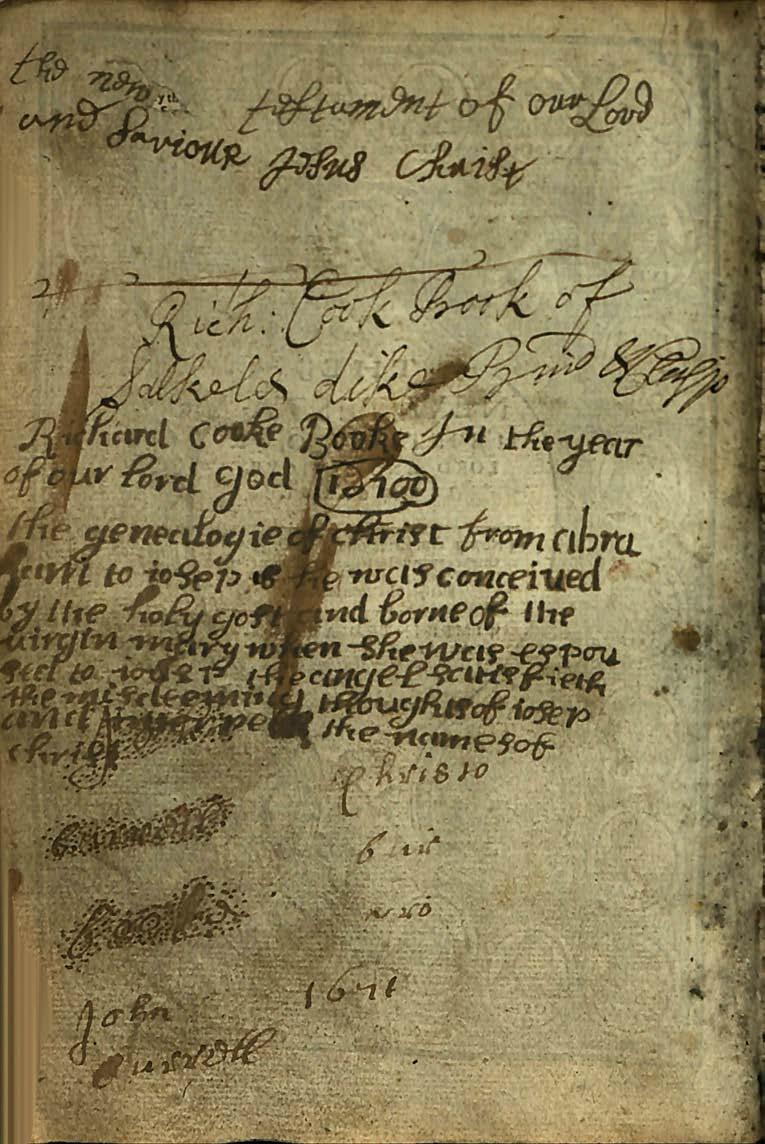 the new testament of our Lord
and Saviour Jesus Christ
Rich: Cook Book of
Salkeld dike
Richard cooke Booke In the year
of our lord god
the genealogie of christ from abra
ham to iosep he was conceiued
by the holy gost and borne of the
uirgin mary when she was espou
sed to iosep the angel satisfieth
the misdeeming thoughts of iosep
and the names of
christ
Christo
bur
John 1671
Burrell